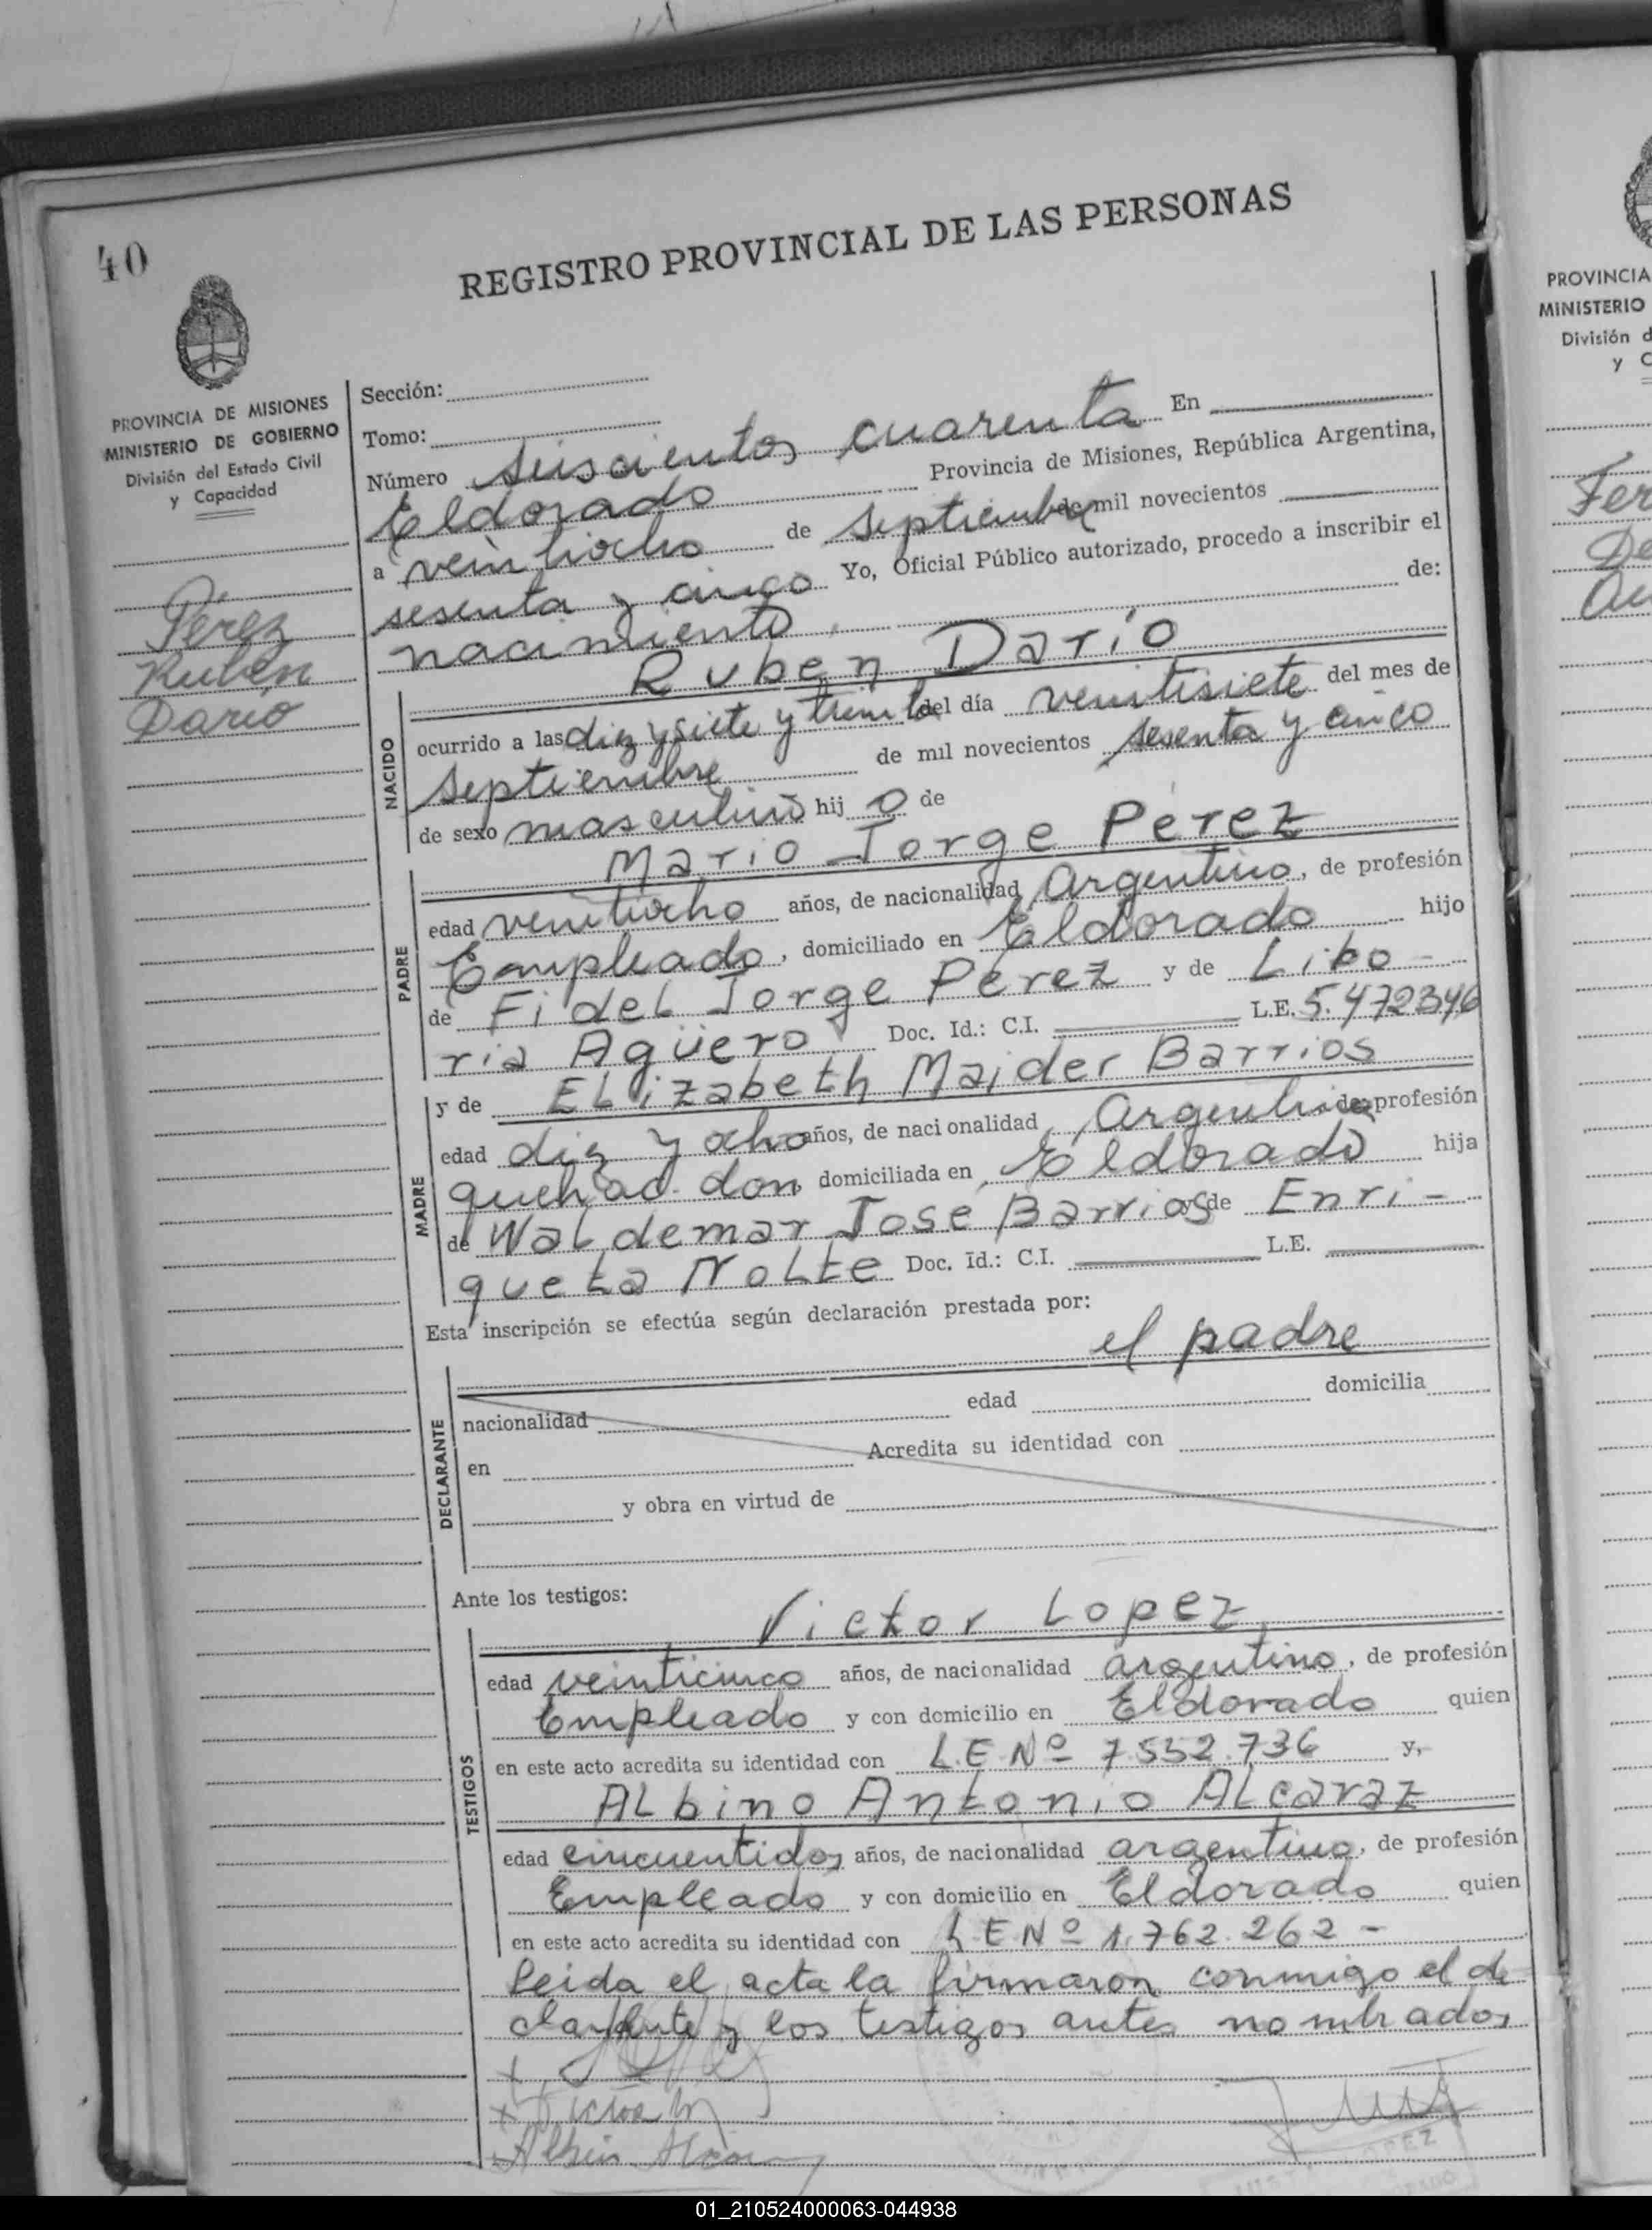 40
REGISTRO PROVINCIAL DE LAS PERSONAS
PROVINCIA DE MISIONES
MINISTERIO DE GOBIERNO
División del Estado Civil
y Capacidad
Pérez
Rubén
Darío
Sección:
Tomo:
Número seiscientos cuarenta En
Eldorado Provincia de Misiones, República Argentina,
a veintiocho de septiembre de mil novecientos
sesenta y cinco Yo, Oficial Público autorizado, procedo a inscribir el
nacimiento de:
Ruben Darío
NACIDO
ocurrido a las diez y siete y treinta del día veintisiete del mes de
septiembre de mil novecientos sesenta y cinco
de sexo masculino hij o de
Mario Jorge Pérez
PADRE
edad veintiocho años, de nacionalidad Argentino, de profesión
Empleado, domiciliado en Eldorado hijo
de Fidel Jorge Pérez y de Libo-
ria Agüero Doc. Id.: C.I. L.E. 5.472346
y de Elizabeth Maider Barrios
MADRE
edad diez y ocho años, de nacionalidad Argentina de profesión
quehac. dom domiciliada en Eldorado hija
de Waldemar José Barrios y de Enri-
queta Nolte Doc. Id.: C.I. L.E.
Esta inscripción se efectúa según declaración prestada por:
el padre
DECLARANTE
nacionalidad edad domicilia
en Acredita su identidad con
y obra en virtud de
Ante los testigos:
Victor Lopez
TESTIGOS
edad veinticinco años, de nacionalidad argentino, de profesión
Empleado y con domicilio en Eldorado quien
en este acto acredita su identidad con L.E.Nº 7.552.736 y,
Albino Antonio Alcaraz
edad cincuentidos años, de nacionalidad argentino, de profesión
Empleado y con domicilio en Eldorado quien
en este acto acredita su identidad con L.E.Nº 1.762.262-
Leida el acta la firmaron conmigo el de
clarante y los testigos antes nombrados
PROVINCIA
MINISTERIO
División d
y C
Fer
De
01_210524000063-044938